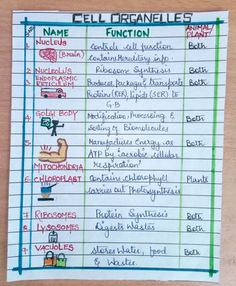 CELL ORGANELLES
NAME FUNCTION ANIMAL/PLANT
1 NUCLEUS Controls cell function Both
(Brain) Contains hereditary info.
2 NUCLEOLUS Ribosome Synthesis Both
3 ENDOPLASMIC RETICULUM Produces, package & transports Both
Protein (RER), Lipids (SER) to
G.B
4 GOLGI BODY Modification, Processing & Both
Sorting of Biomolecules
5 Manufactures Energy as Both
ATP by "aerobic cellular
MITOCHONDRIA respiration"
6 CHLOROPLAST Contains chlorophyll Plants
carries out Photosynthesis
7 RIBOSOMES Protein Synthesis Both
8 LYSOSOMES Digests Wastes Both
VACUOLES stores Water, food Both
& Waste.